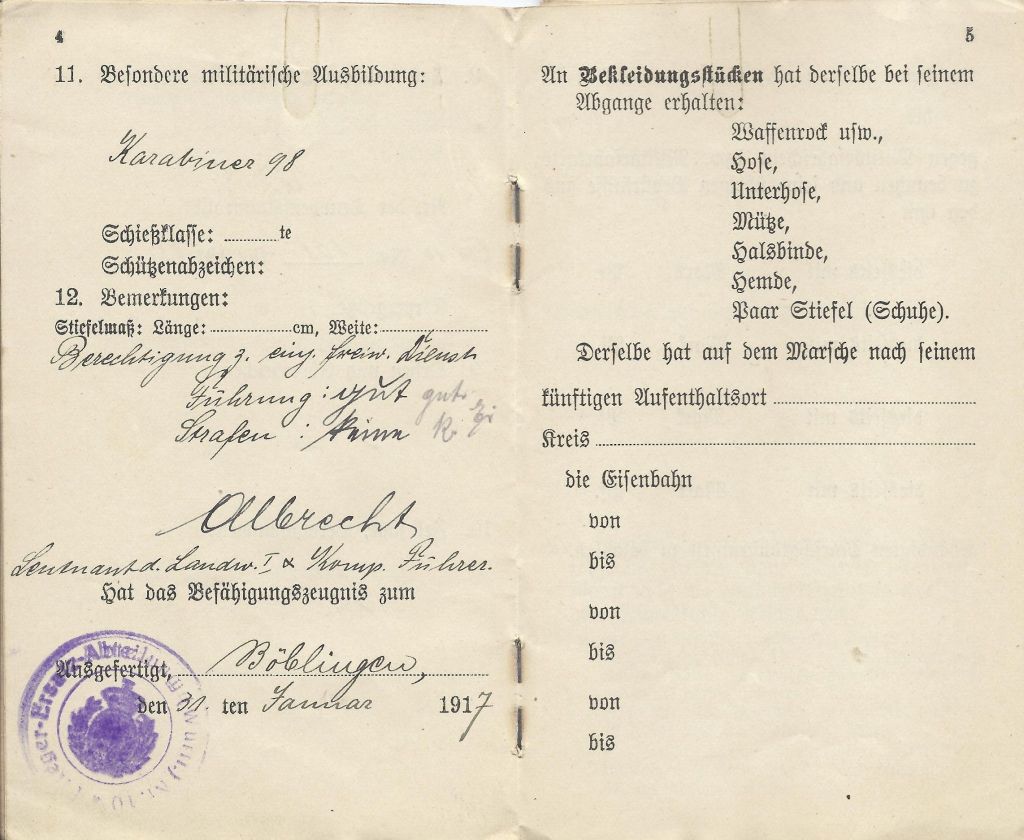 4
11. Besondere militärische Ausbildung:
Karabiner 98
Schießklasse: ............te
Schützenabzeichen:
12. Bemerkungen:
Stiefelmaß: Länge: ............ cm, Weite: ............
Berechtigung z. einj. freiw. Dienst
Führung: gut gut
Strafen: keine k.
Albrecht
Leutnant d. Landw. I & Komp. Führer.
Hat das Befähigungszeugnis zum
Ausgefertigt, Böblingen,
den 31. ten Januar 1917
5
An Bekleidungsstücken hat derselbe bei seinem
Abgange erhalten:
Waffenrock usw.,
Hose,
Unterhose,
Mütze,
Halsbinde,
Hemde,
Paar Stiefel (Schuhe).
Derselbe hat auf dem Marsche nach seinem
künftigen Aufenthaltsort ............
Kreis ............
die Eisenbahn
von
bis
von
bis
von
bis